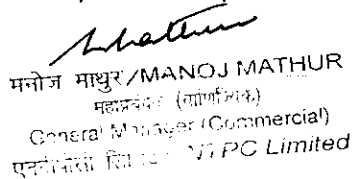 मनोज माथुर/MANOJ MATHUR
महाप्रबंधक (वाणिज्यिक)
General Manager (Commercial)
एनटीपीसी NTPC Limited